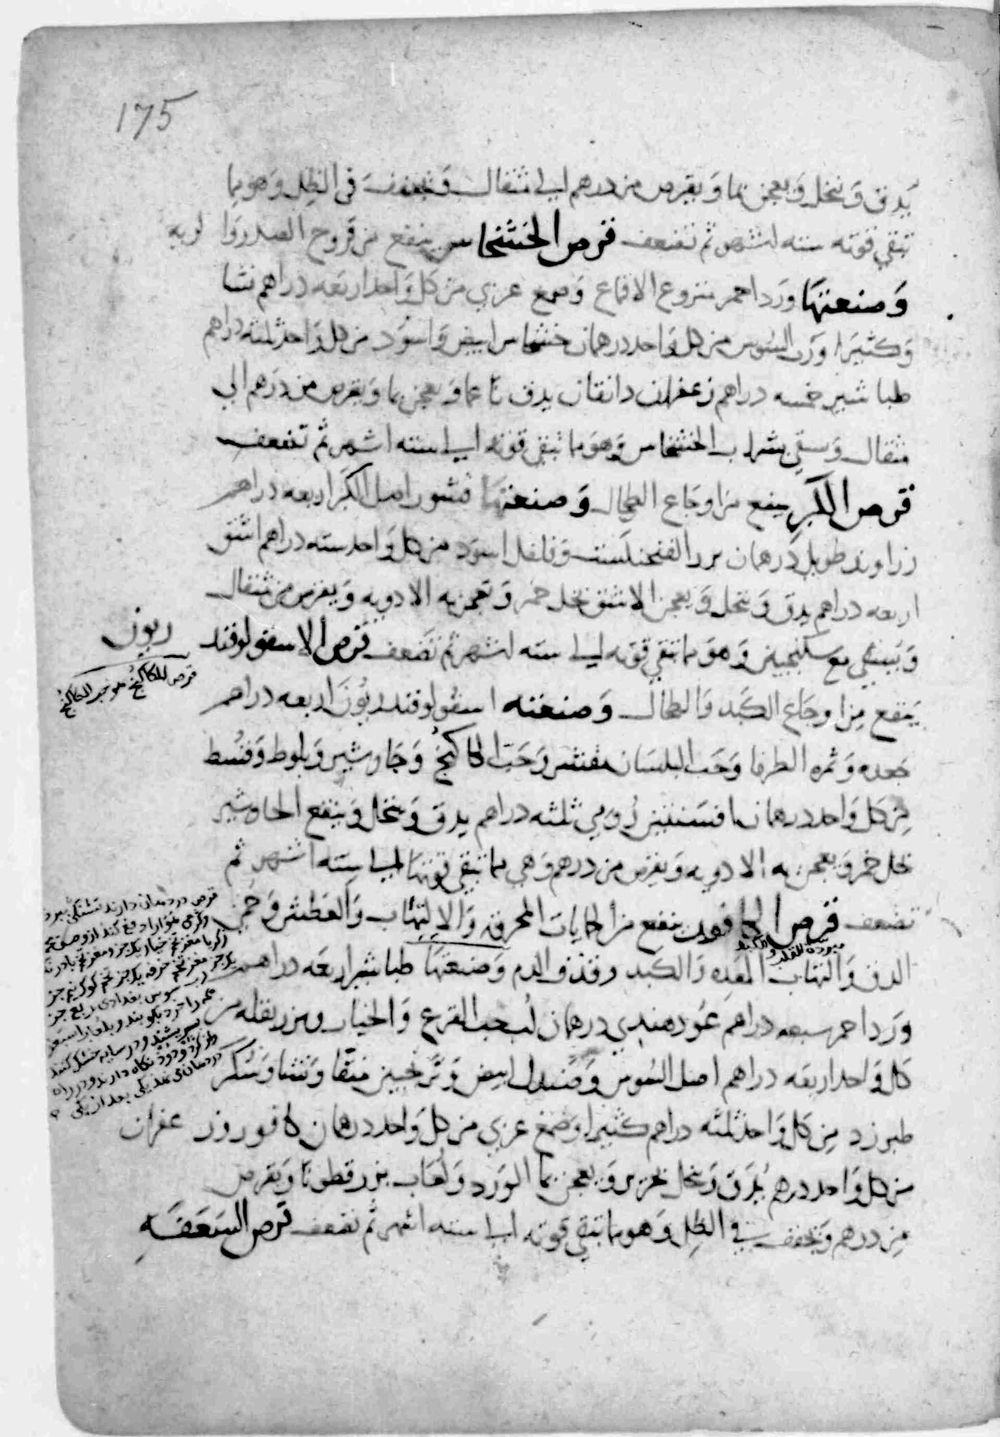 175
يدق وينخل ويعجن بما ويقرص من درهم الى مثقال ويجفف فى الظل وهو مما
تبقى قوته سته اشهر ثم تضعف قرص الخشخاس ينفع من قروح الصدر والريه
وصنعتها ورد احمر منزوع الاقماع وصمغ عربي من كل واحد اربعه دراهم نشا
وكثيرا ورب السوس من كل واحد درهمان خشخاس ابيض واسود من كل واحد ثلثه دراهم
طباشير خمسه دراهم زعفران دانقان يدق ناعما ويعجن بما ويقرص من درهم الى
مثقال وسقى بشراب الخشخاس وهو مما تبقى قوته الى سته اشهر ثم تضعف
قرص الكبر ينفع من اوجاع الطحال وصنعتها قشور اصل الكبر اربعه دراهم
زراوند طويل درهمان بزر الفنجنكست وفلفل اسود من كل واحد سته دراهم اشق
اربعه دراهم يدق وينخل ويعجن الاشق بخل خمر وتعجن به الادويه ويقرص من مثقال
ويسقى مع سكنجبين وهو مما تبقى قوته الى سته اشهر ثم تضعف قرص الاسقولوقندريون
ينفع من اوجاع الكبد والطحال وصنعته اسقولوقندريون اربعه دراهم
جعده وثمره الطرفا وحب البلسان مقشر وحب الكاكنج وجاوشير وبلوط وقسط
من كل واحد درهمان افسنتين رومي ثلثه دراهم يدق وينخل وينقع الجاوشير
بخل خمر ويعجن به الادويه ويقرص من درهم وهي مما تبقى قوتها الى سته اشهر ثم
تضعف قرص الكافور ينفع من الحمايات المحرقه والالتهاب والعطش وحمى
الدق والتهاب المعده والكبد وقذف الدم وصنعتها طباشير اربعه دراهم
ورد احمر سبعه دراهم عود هندي درهمان لب حب القرع والخيار وبزر بقله من
كل واحد اربعه دراهم اصل السوس وصندل ابيض وترنجبين منقا ونشا وسكر
طبرزد من كل واحد ثلثه دراهم كثيرا وصمغ عربي من كل واحد درهمان كافور وزعفران
من كل واحد درهم يدق وينخل بحرير ويعجن بما الورد ولعاب بزر قطونا ويقرص
من درهم ويجفف في الظل وهو مما تبقى قوته الى سته اشهر ثم تضعف قرص السعفه
قرص الكاكنج هو حب الكاكنج